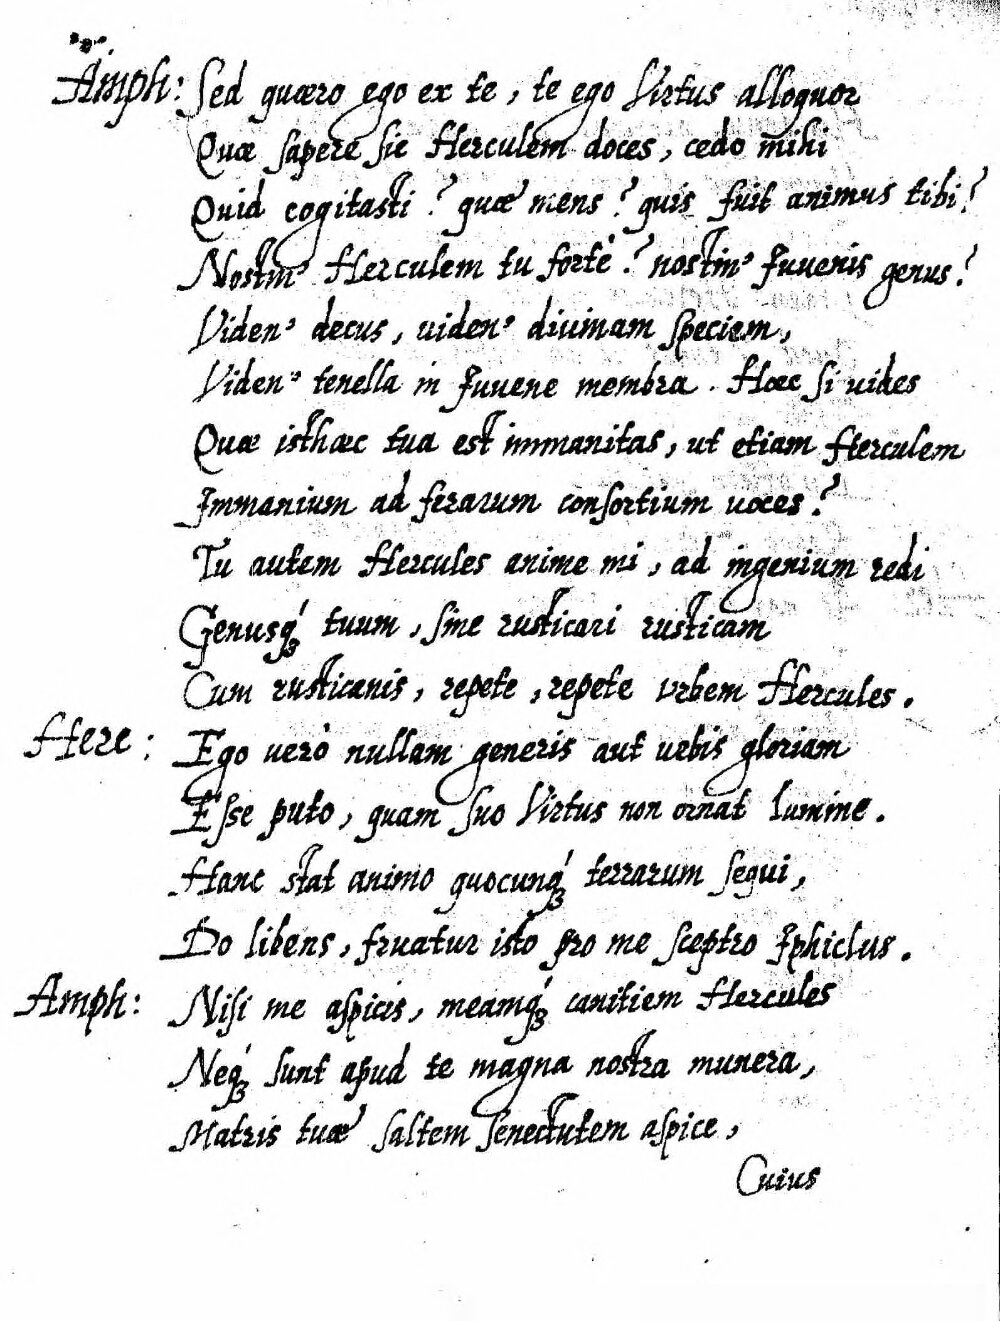 Amph: Sed quæro ego ex te, te ego Virtus alloquor
Quæ sapere sic Herculem doces, cedo mihi
Quid cogitasti? quæ mens? quis fuit animus tibi?
Nostin' Herculem tu fortè? nostin' Iuuenis genus?
Viden' decus, uiden' diuinam speciem,
Viden' tenella in Iuuene membra. Hæc si uides
Quæ isthæc tua est immanitas, ut etiam Herculem
Immanium ad ferarum consortium uoces?
Tu autem Hercules anime mi, ad ingenium redi
Genusq́ꝫ tuum, sine rusticari rusticam
Cum rusticanis, repete, repete vrbem Hercules.
Herc: Ego uerò nullam generis aut urbis gloriam
Esse puto, quam suo Virtus non ornat lumine.
Hanc stat animo quocunq́ꝫ terrarum sequi,
Do libens, fruatur isto pro me sceptro Iphiclus.
Amph: Nisi me aspicis, meamq́ꝫ canitiem Hercules
Neq́ꝫ sunt apud te magna nostra munera,
Matris tuæ saltem senectutem aspice,
Cuius